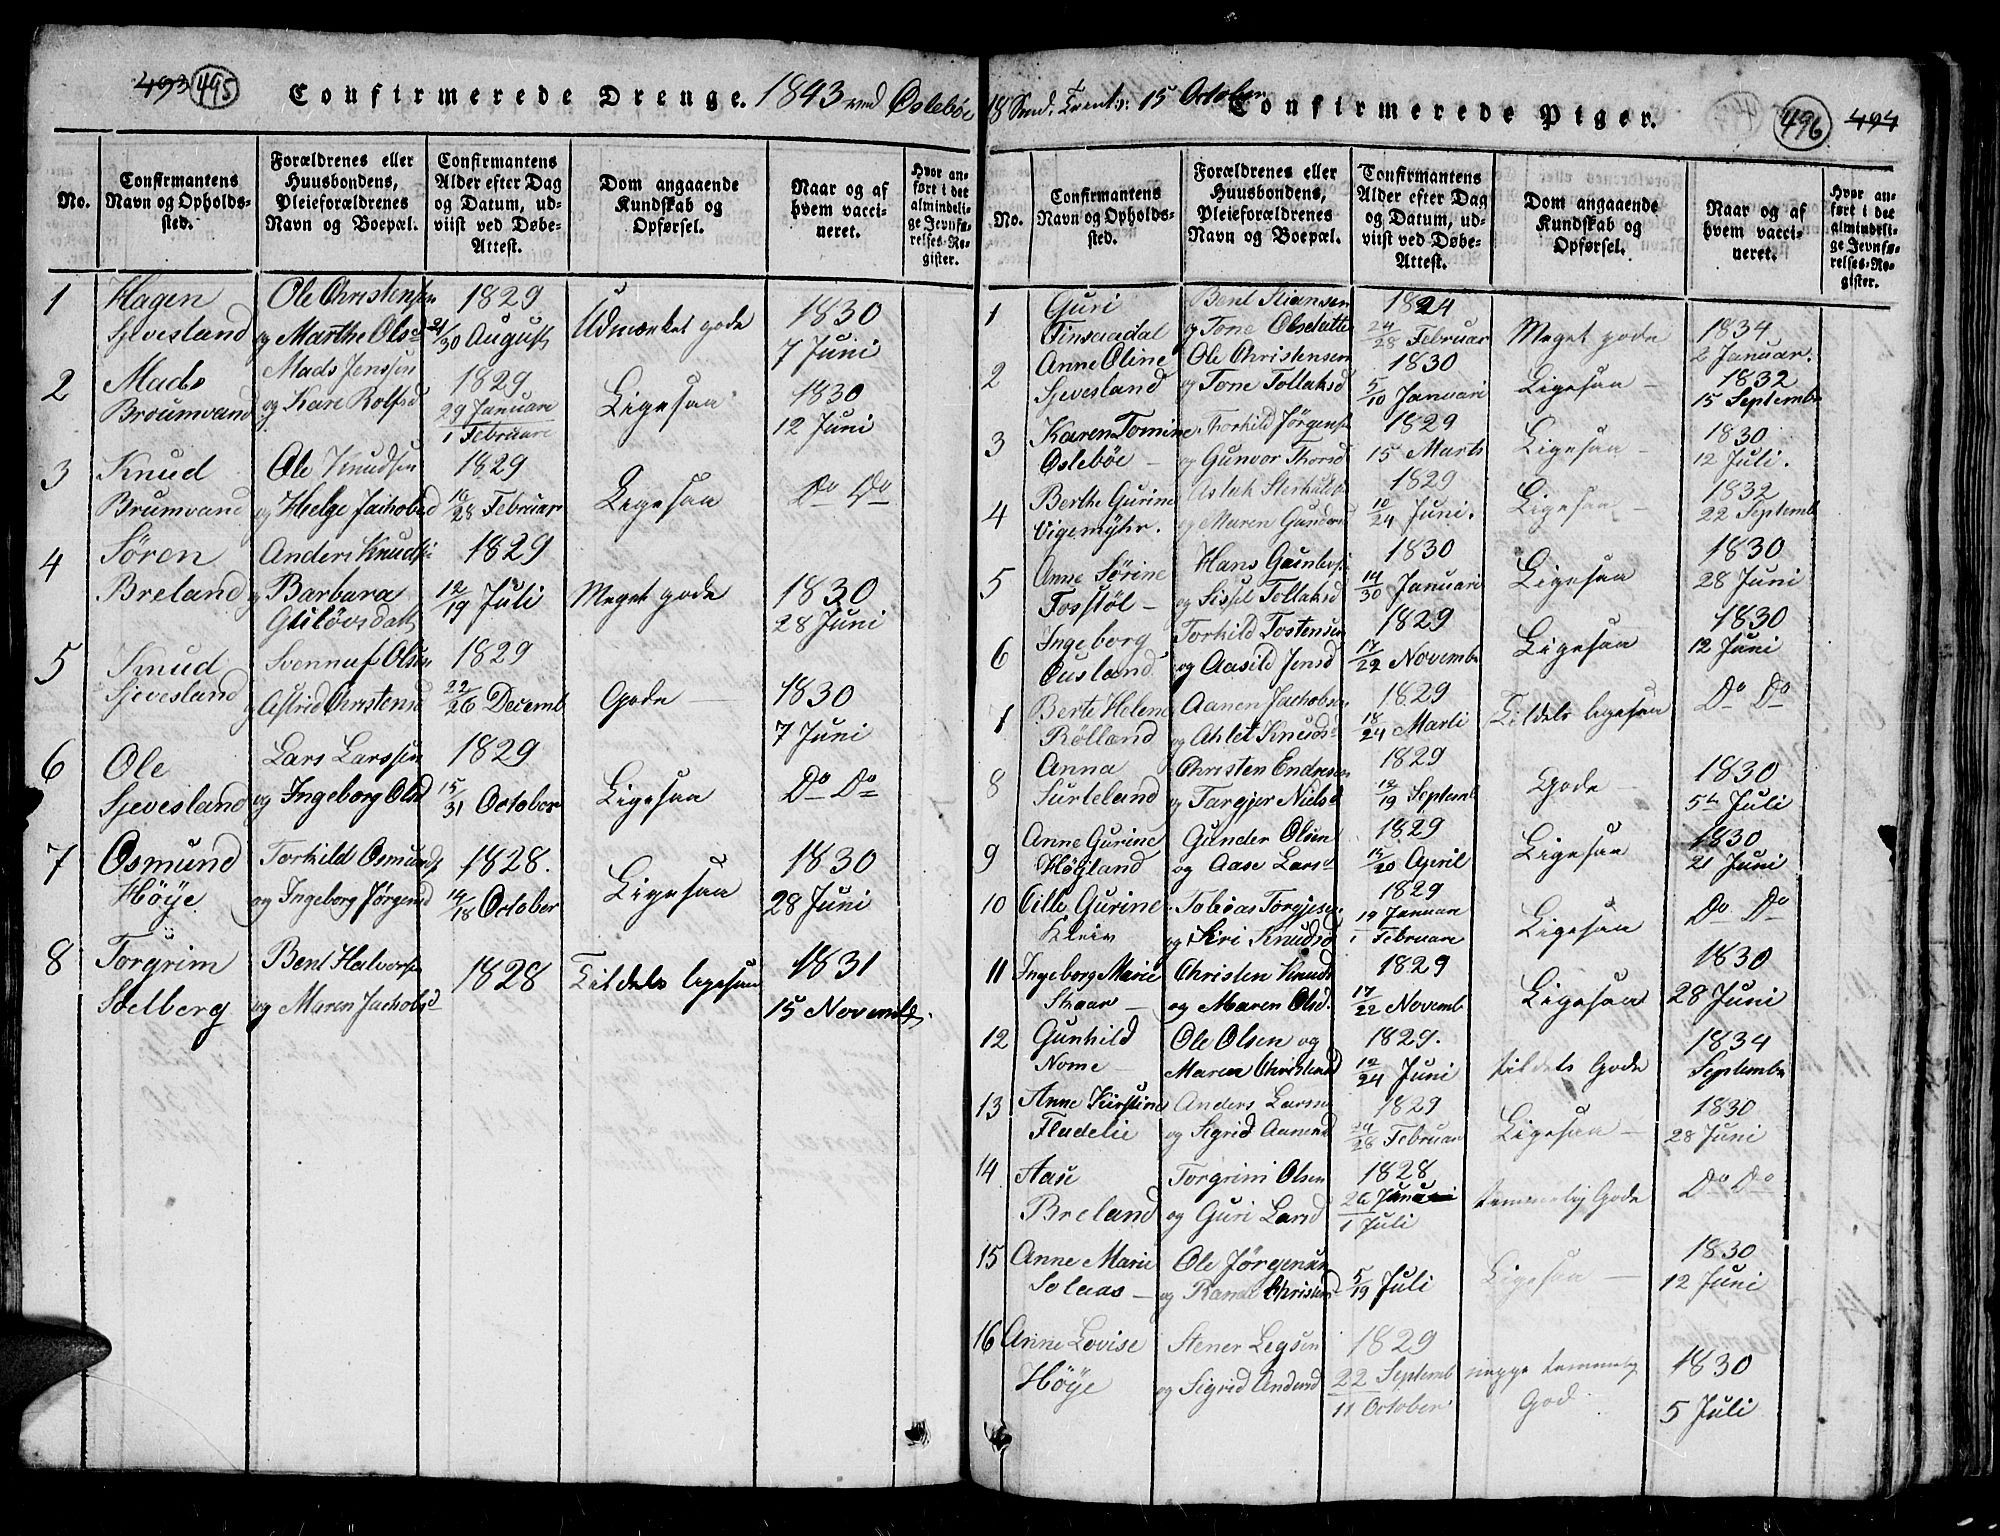 493 495
Confirmerede Drenge. 1843 ved Øslebøe
No.
Confirmantens Navn og Opholds-sted.
Forældrenes eller Huusbondens, Pleieforældrenes Navn og Boepæl.
Confirmantens Alder efter Dag og Datum, ud-viist ved Døbe-Attest.
Dom angaaende Kundskab og Opførsel.
Naar og af hvem vacci-neret.
Hvor an-ført i det almindeli-ge Jevnfø-relses-Re-gister.
1 Hagen Ole Christensen 1829 Udmærket gode 1830
Sjevesland og Marthe Olsd 21/30 August 7 Juni
2 Mads Mads Jenssen 1829 Ligesaa 1830
Broumvand og Kari Rolfsd 29 Januari 12 Juni
1 Februari
3 Knud Ole Knudsen 1829 Ligesaa Do Do
Brumvand og Helge Jachobsd 16/28 Februar
4 Søren Anders Knuds 1829
Breland og Barbara 12/19 Juli Meget gode 1830
28 Juni
5 Knud Svennuf Olsen 1829
Sjevesland og Astrid Christensd 22/26 Decemb Gode 1830
7 Juni
6 Ole Lars Larssen 1829
Sjevesland og Ingeborg Olsd 15/31 October Ligesaa Do Do
7 Osmund Torkild Osmunds 1828. Ligesaa 1830
Høÿe og Ingeborg Jørgensd 14/18 October 28 Juni
8 Torgrim Bent Halvorsen 1828 Tildels ligesaa 1831
Solberg og Maren Jachobsd 15 Novemb.
18 Sønd. Trenit: 15 October
Confirmerede Piger.
496 494
No.
Confirmantens Navn og Opholds-sted.
Forældrenes eller Huusbondens, Pleieforældrenes Navn og Boepæl.
Confirmantens Alder efter Dag og Datum, ud-viist ved Døbe-Attest.
Dom angaaende Kundskab og Opførsel.
Naar og af hvem vacci-neret.
Hvor an-ført i det almindeli-ge Jevnfø-relses-Re-gister.
1 Guri Bent Stiansen 1824 Meget gode 1834
Finsaadal og Tone Olsdatte 24/28 Februar 2 Januar.
2 Anne Oline Ole Christensen 1830 Ligesaa 1832
Sjevesland og Tone Tollaksd 5/10 Januari 15 Septembr
3 Karen Tomine Torkild Jørgens 1829 Ligesaa 1830
Øslebøe og Gunvor Thorsd 15 Marts 12 Juli.
4 Berthe Gurine Aslak 1829 Ligesaa 1832
Vigemÿhr. og Maren Gunders 10/24 Juni. 22 Septemb
5 Anne Sørine Hans 1830 Ligesaa 1830
Fosstøl og Sissel Tollaksd 14/30 Januari 28 Juni
6 Ingeborg Torkild Tostensen 1829 Ligesaa 1830
Ousland og Aasild Jensd 17/22 Novembr 12 Juni
1 Berte Helene Aanen Jachobsen 1829 Tildels ligesaa Do Do
Rølland og Ahlet Knuds 18/24 Marti
8 Anna Christen Endresen 1829 Gode 1830
Surteland og Targjer Nielsd 12/19 Septemb 5te Juli
9 Anne Gurine Gunder Olsen 1829 Ligesaa 1830
Høgland og Aase Lars 15/20 April 21 Juni
10 Cille Gurine Tobias Torgjesen 1829 Ligesaa Do Do
Kleiv og Siri Knudsd 19 Januari
1 Februari
11 Ingeborg Marie Christen Knuds 1829 Ligesaa 1830
Skaar og Maren Olsd. 17/22 Novemb 28 Juni
12 Gunhild Ole Olsen og 1829. tildels Gode 1834
Nome Maren Christensd 12/24 Juni Septembr
13 Anne Kirstine Anders Larsen 1829 Ligesaa 1830
Fladelie og Sigrid Aanensd 24/28 Februar 28 Juni
14 Aase Torgrim Olsen 1828 temmelig Gode Do Do
Breland og Guri Larsd 26 Januari
1 Juli
15 Anne Marie Ole Jørgensen 5/19 Juli Ligesaa 1830
Solaas og Randi Christensd 12 Juni
16 Anne Lovise Stener 1829 neppe temmelig 1830
Høÿe og Sigrid Andersd 22 Septemb God. 5 Juli
11 October